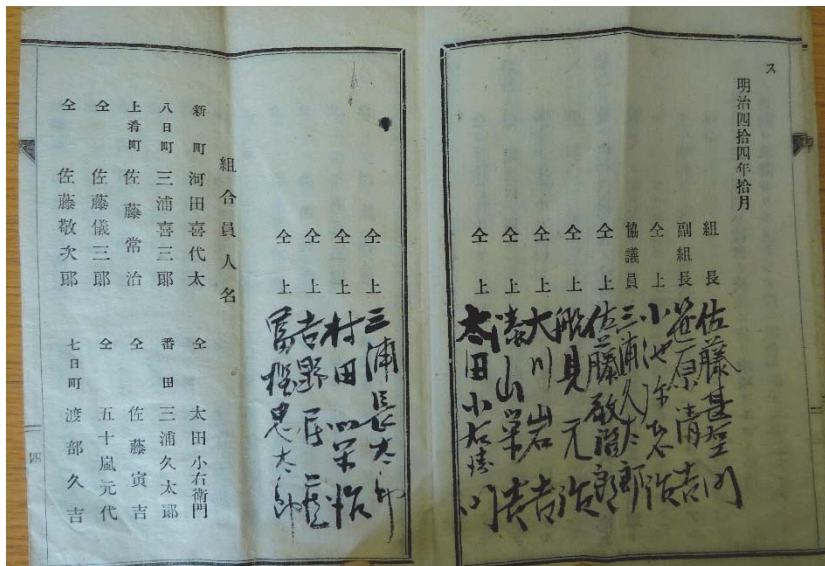 ス
明治四拾四年拾月
組長 佐藤甚左衛門
副組長 笹原清吉
仝上 小池
協議員 三浦久太郎
仝上 佐藤敬治郎
仝上 船見元治
仝上 大川岩吉
仝上 湊山榮吉
仝上 太田小右衛門
仝上 三浦長太郎
仝上 村田榮治
仝上 吉野
仝上 富樫忠太郎
組合員人名
新町 河田喜代太
仝 太田小右衛門
八日町 三浦喜三郎
番田 三浦久太郎
上肴町 佐藤常治
仝 佐藤寅吉
仝 佐藤儀三郎
仝 五十嵐元代
仝 佐藤敬次郎
七日町 渡部久吉
四